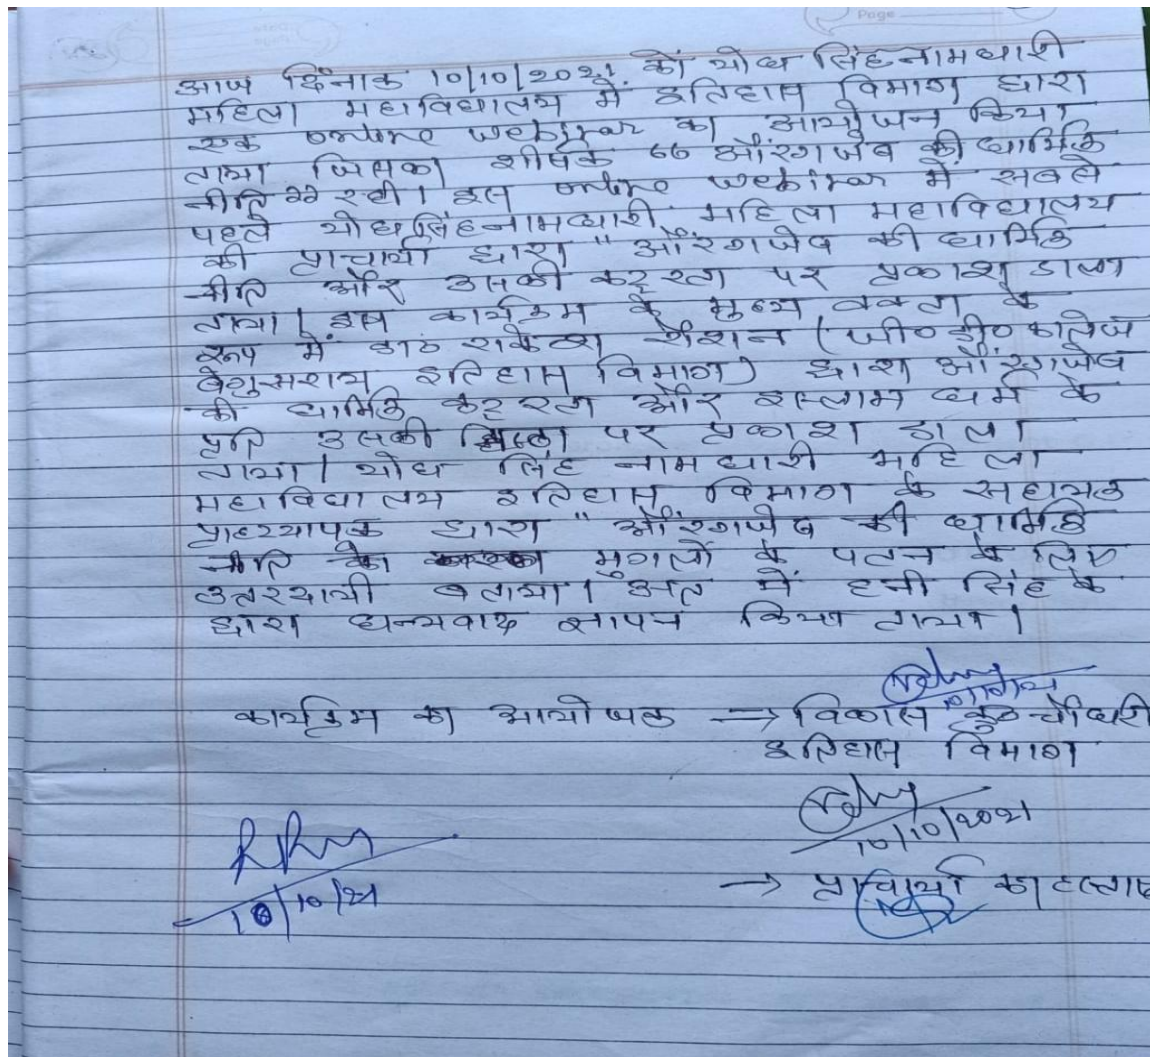 Page
आज दिनाक 10/10/2021 को योध सिंह नामधारी
महिला महाविद्यालय में इतिहास विभाग द्वारा
एक online webinar का आयोजन किया
गया जिसका शीर्षक "औरंगजेब की धार्मिक
नीति" रही। इस online webinar में सबसे
पहले योध सिंह नामधारी महिला महाविद्यालय
की प्राचार्या द्वारा "औरंगजेब की धार्मिक
नीति और उसकी कट्टरता पर प्रकाश डाला
गया। इस कार्यक्रम के मुख्य वक्ता के
रूप में डा० राकेश रौशन (जी० डी० कालेज
बेगुसराय इतिहास विभाग) द्वारा औरंगजेब
की धार्मिक कट्टरता और इस्लाम धर्म के
प्रति उसकी पर प्रकाश डाला
गया। योध सिंह नामधारी महिला
महाविद्यालय इतिहास विभाग के सहायक
प्राध्यापक द्वारा "औरंगजेब की धार्मिक
नीति को मुगलों के पतन के लिए
उतरदायी बताया। अंत में हनी सिंह के
द्वारा धन्यवाद ज्ञापन किया गया।
कार्यक्रम का आयोजक → विकास कु० चौधरी
इतिहास विभाग
10/10/2021
10/10/21
→ प्राचार्या का हस्ताक्ष